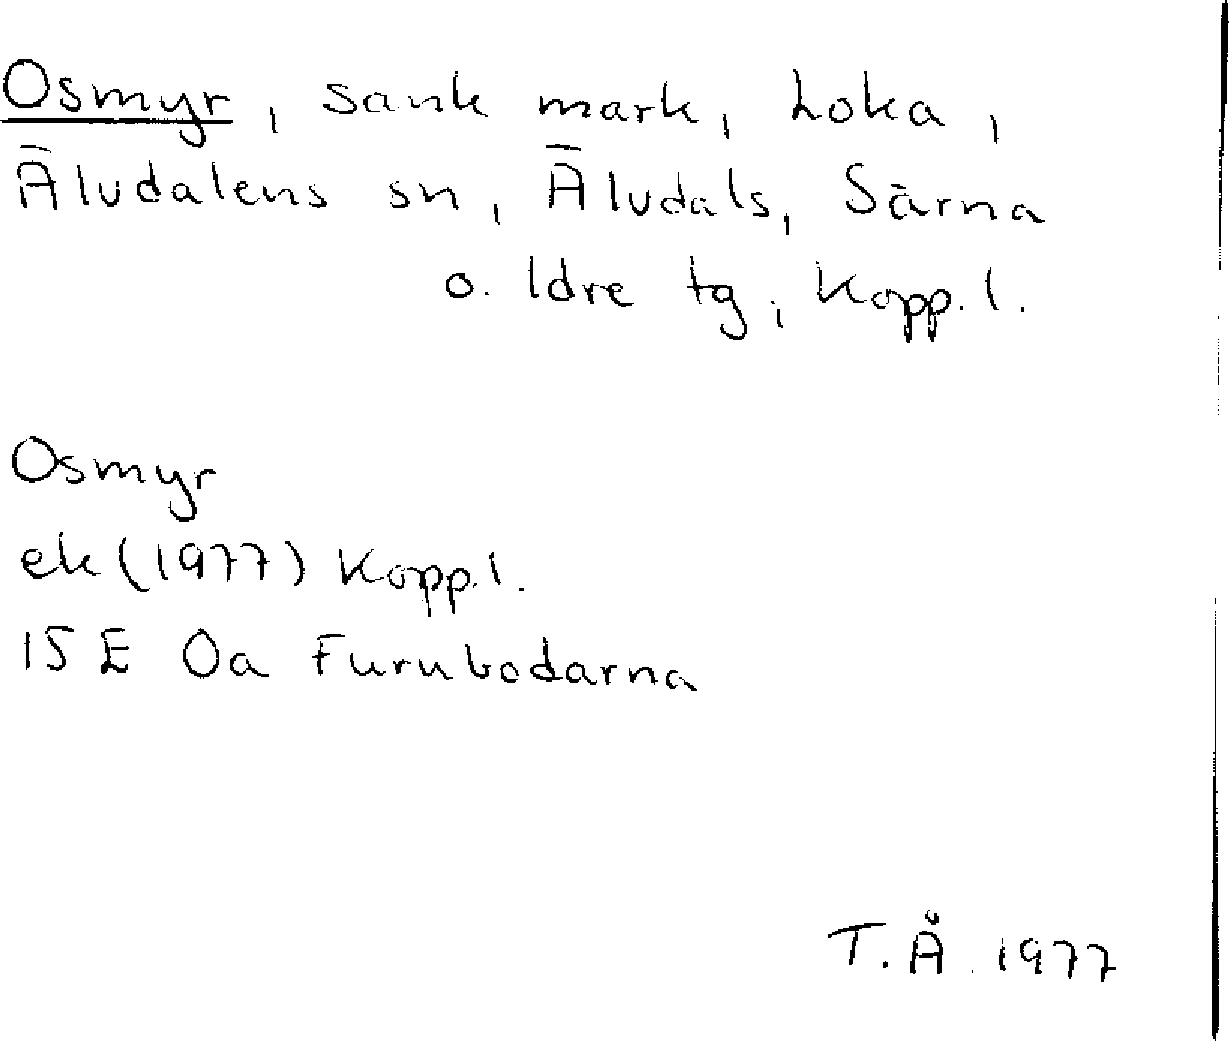 Osmyr, sank mark, Loka,
Älvdalens sn, Älvdals, Särna
o. Idre tg, Kopp. l.
Osmyr
ek (1977) Kopp. l.
15 E 0a Furubodarna
T. Å. 1977